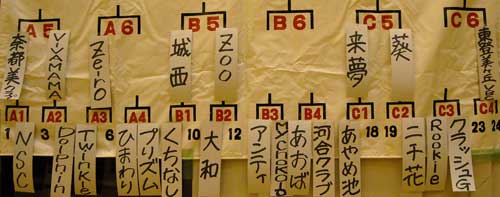 A5
A6
B5
B6
C5
C6
奈都美クラブ
V.YAMAMA
Zero
城西
ZOO
来夢
葵
A1
A2
A3
A4
B1
B2
B3
B4
C1
C2
C3
C4
1
3
4
6
7
9
10
12
13
18
19
21
22
24
NSC
Dolphin
Twinkle
ひまわり
プリズム
くちなし
大和
アンティ
あおば
河合クラブ
あやめ池
二千花
Rookie
クラッシュG